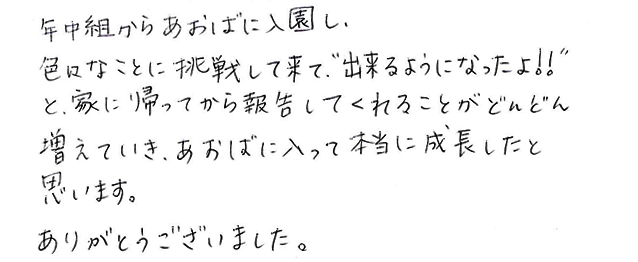 年中組からあおばに入園し、
色々なことに挑戦して来て、"出来るようになったよ!!"
と、家に帰ってから報告してくれることがどんどん
増えていき、あおばに入って本当に成長したと
思います。
ありがとうございました。